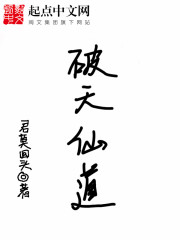 起点中文网
阅文集团旗下网站
破天仙道
君莫回头@著